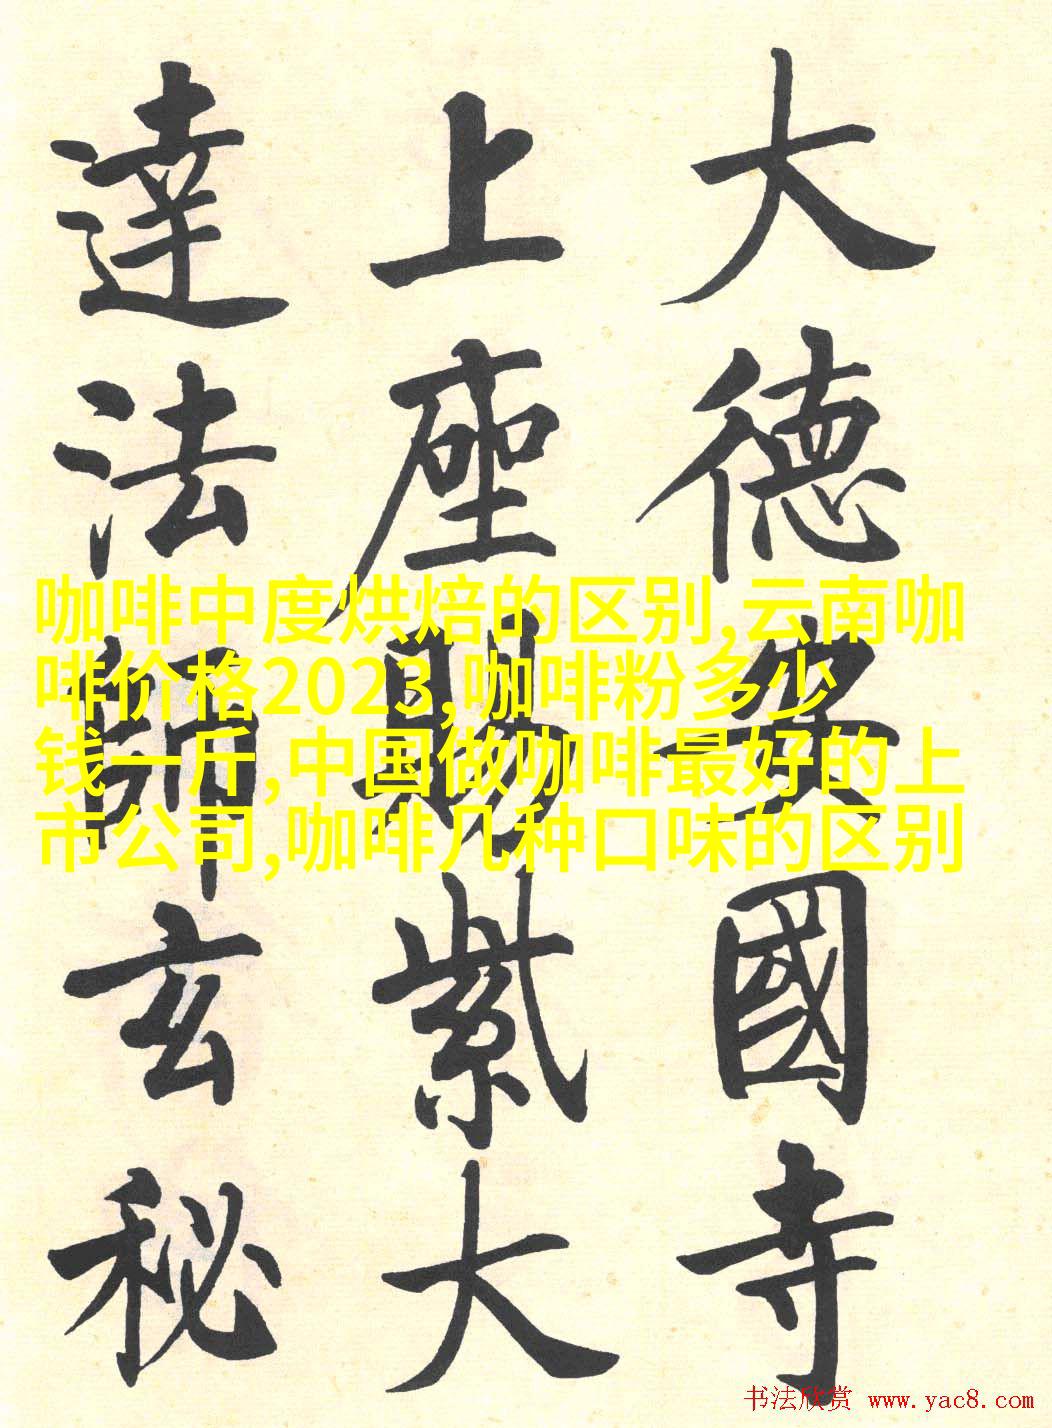 大德安國寺
上座賜紫大
達法師玄秘
咖啡中度烘焙的区别,云南咖
啡价格2023,咖啡粉多少
钱一斤,中国做咖啡最好的上
市公司,咖啡几种口味的区别
书法欣赏 www.yac8.com